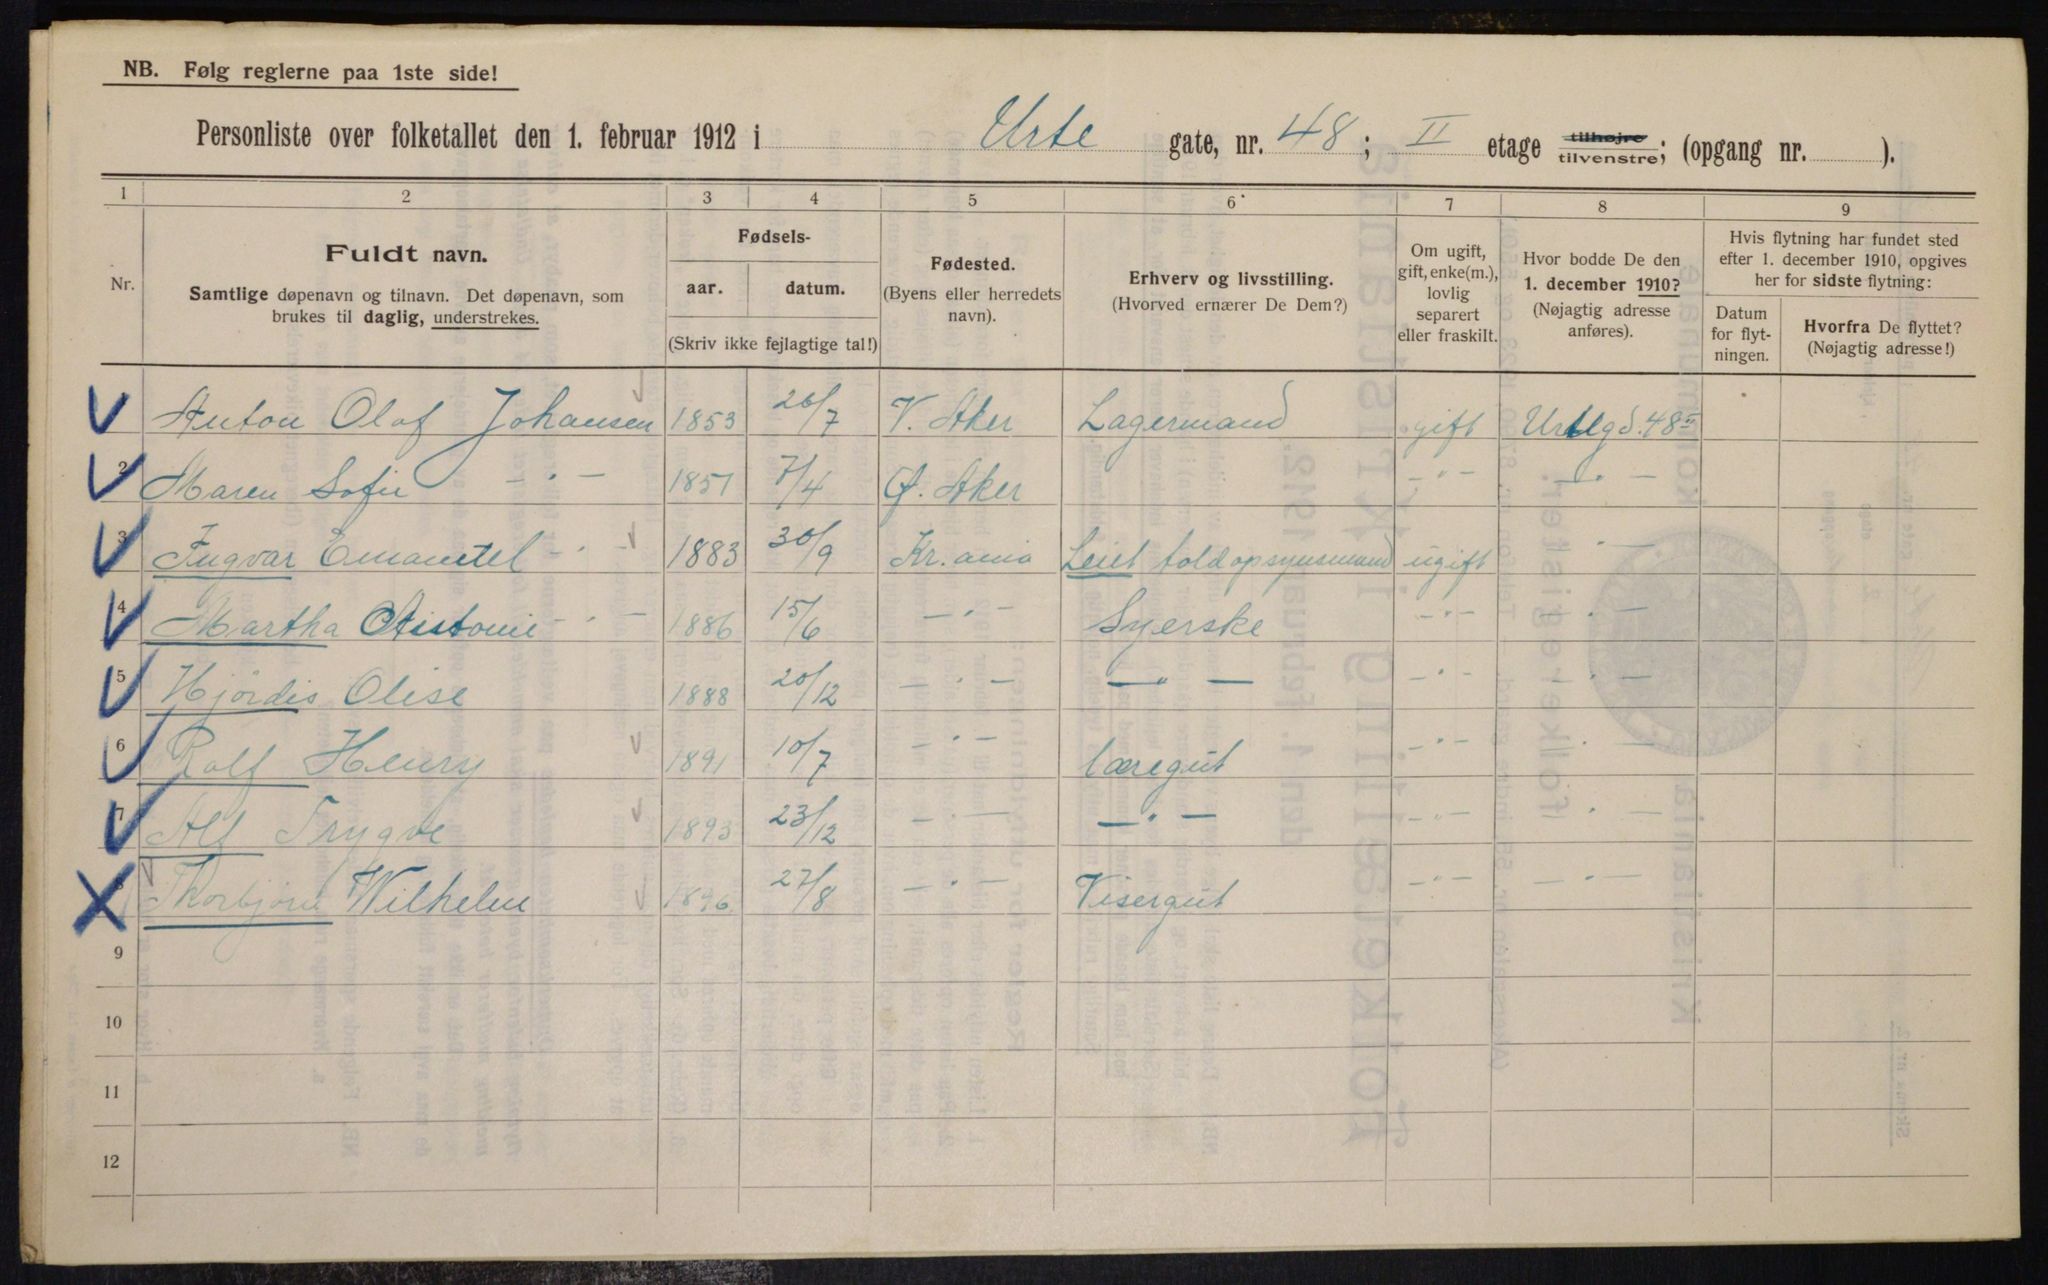 NB. Følg reglerne paa 1ste side!
Personliste over folketallet den 1. februar 1912 i Urte gate, nr. 48; II etage tilhøjre tilvenstre; (opgang nr. ).
1 2 3 4 5 6 7 8 9
Nr.
Fuldt navn.
Samtlige døpenavn og tilnavn. Det døpenavn, som
brukes til daglig, understrekes.
Fødsels-
aar. datum.
(Skriv ikke fejlagtige tal!)
Fødested.
(Byens eller herredets
navn).
Erhverv og livsstilling.
(Hvorved ernærer De Dem?)
Om ugift,
gift, enke(m.),
lovlig
separert
eller fraskilt.
Hvor bodde De den
1. december 1910?
(Nøjagtig adresse
anføres).
Hvis flytning har fundet sted
efter 1. december 1910, opgives
her for sidste flytning:
Datum
for flyt-
ningen.
Hvorfra De flyttet?
(Nøjagtig adresse!)
Anton Olaf Johansen 1853 26/7 V. Aker Lagermand gift Urtegd. 48 II
2 Maren Sofie - " - 1857 7/4 Ø. Aker - " - - " -
3 Ingvar Emanuel - " - 1883 30/9 Kr.ania Leiet toldopsynsmand ugift " -
4 Martha Antonie - " - 1886 15/6 - " - Syerske - " - - " -
5 Hjördis Olise 1888 20/12 - " - - " - - " - " -
6 Rolf Henry 1891 10/7 - " - læregut - " - " -
7 Alf Trygve 1893 23/12 - " - - " - - " - " -
8 Thorbjörn Wilhelm 1896 27/8 - " - Visergut - " - - " -
9
10
11
12